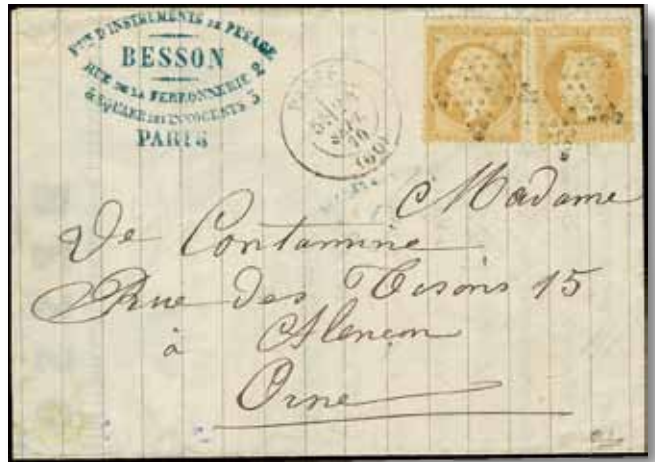 FQUE D'INSTRUMENTS DE PESAGE
BESSON
RUE DE LA FERRONNERIE 2
& SQUARE DES INNOCENTS 3
PARIS
PARIS
SEPT.
70
(60)
Madame
De Contamine
Rue des Tisons 15
à Alençon
Orne